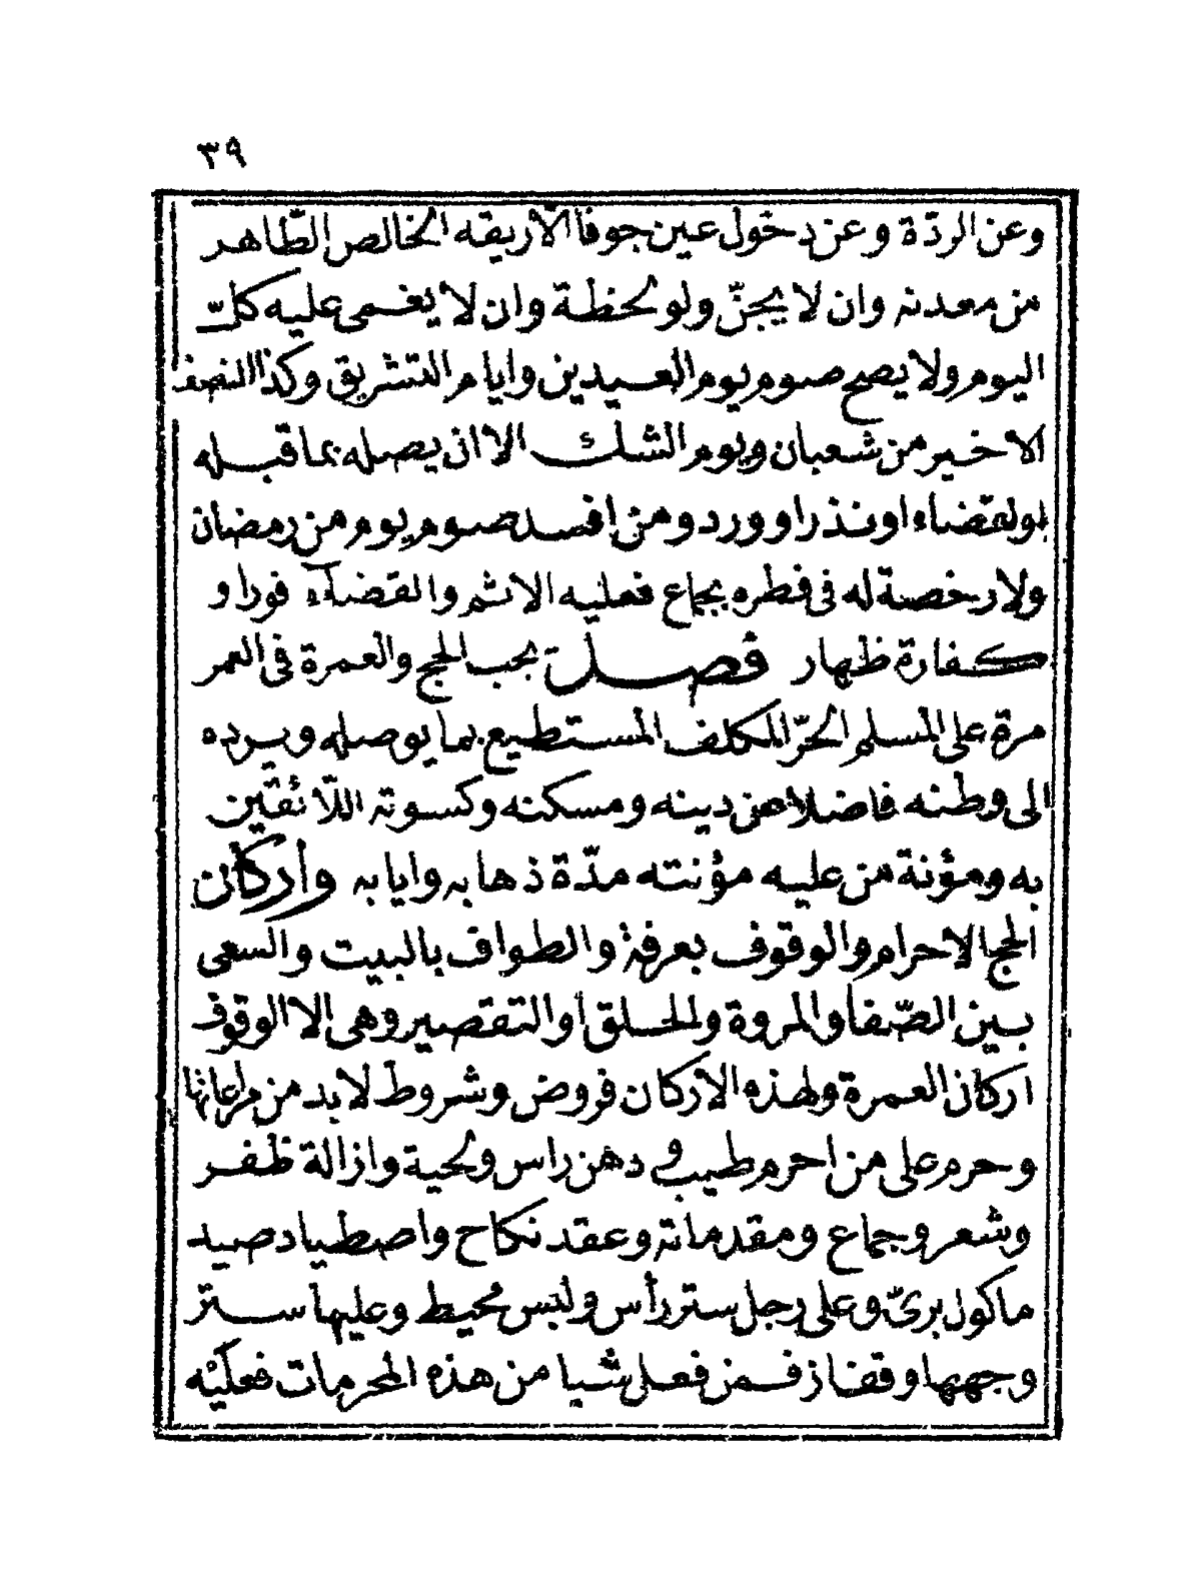 ٣٩
وعن الردّة وعن دخول عين جوفا الا ريقه الخالص الطّاهر
من معدنه وان لا يجنّ ولو لحظة وان لا يغمى عليه كلّ
اليوم ولا يصح صوم يوم العيدين وايام التشريق وكذا النصف
الاخير من شعبان ويوم الشك الا ان يصله بما قبله
او لقضاء او نذر او ورد ومن افسد صوم يوم من رمضان
ولا رخصة له فى فطره بجماع فعليه الاثم والقضآء فورا و
كفارة ظهار فصل يجب الحج والعمرة فى العمر
مرة على المسلم الحرّ المكلف المستطيع بما يوصله ويرده
الى وطنه فاضلا عن دينه ومسكنه وكسوته اللآئقين
به ومؤنة من عليه مؤنته مدّة ذهابه وايابه وأركان
الحج الاحرام والوقوف بعرفة والطواف بالبيت والسعى
بين الصّفا والمروة والحلق او التقصير وهى الا الوقوف
اركان العمرة ولهذه الاركان فروض وشروط لابد من مراعاتها
وحرم على من احرم طيب و دهن راس ولحية وازالة ظفر
وشعر وجماع ومقدماته وعقد نكاح واصطياد صيد
ماكول برىّ وعلى رجل ستر رأس ولبس محيط وعليها ستر
وجهها وقفاز فمن فعل شيا من هذه المحرمات فعليه